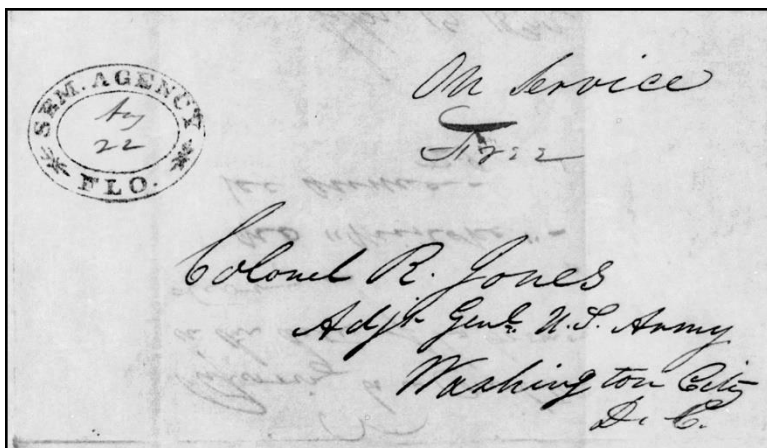 SEM. AGENCY
Ag
22
FLO.
On Service
Free
Colonel R. Jones
Adjt. Genl. U.S. Army
Washington City
D. C.